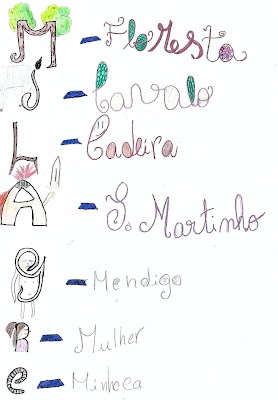 M - Floresta
J - Cavalo
L - Cadeira
A - S. Martinho
g - Mendigo
- Mulher
e - Minhoca